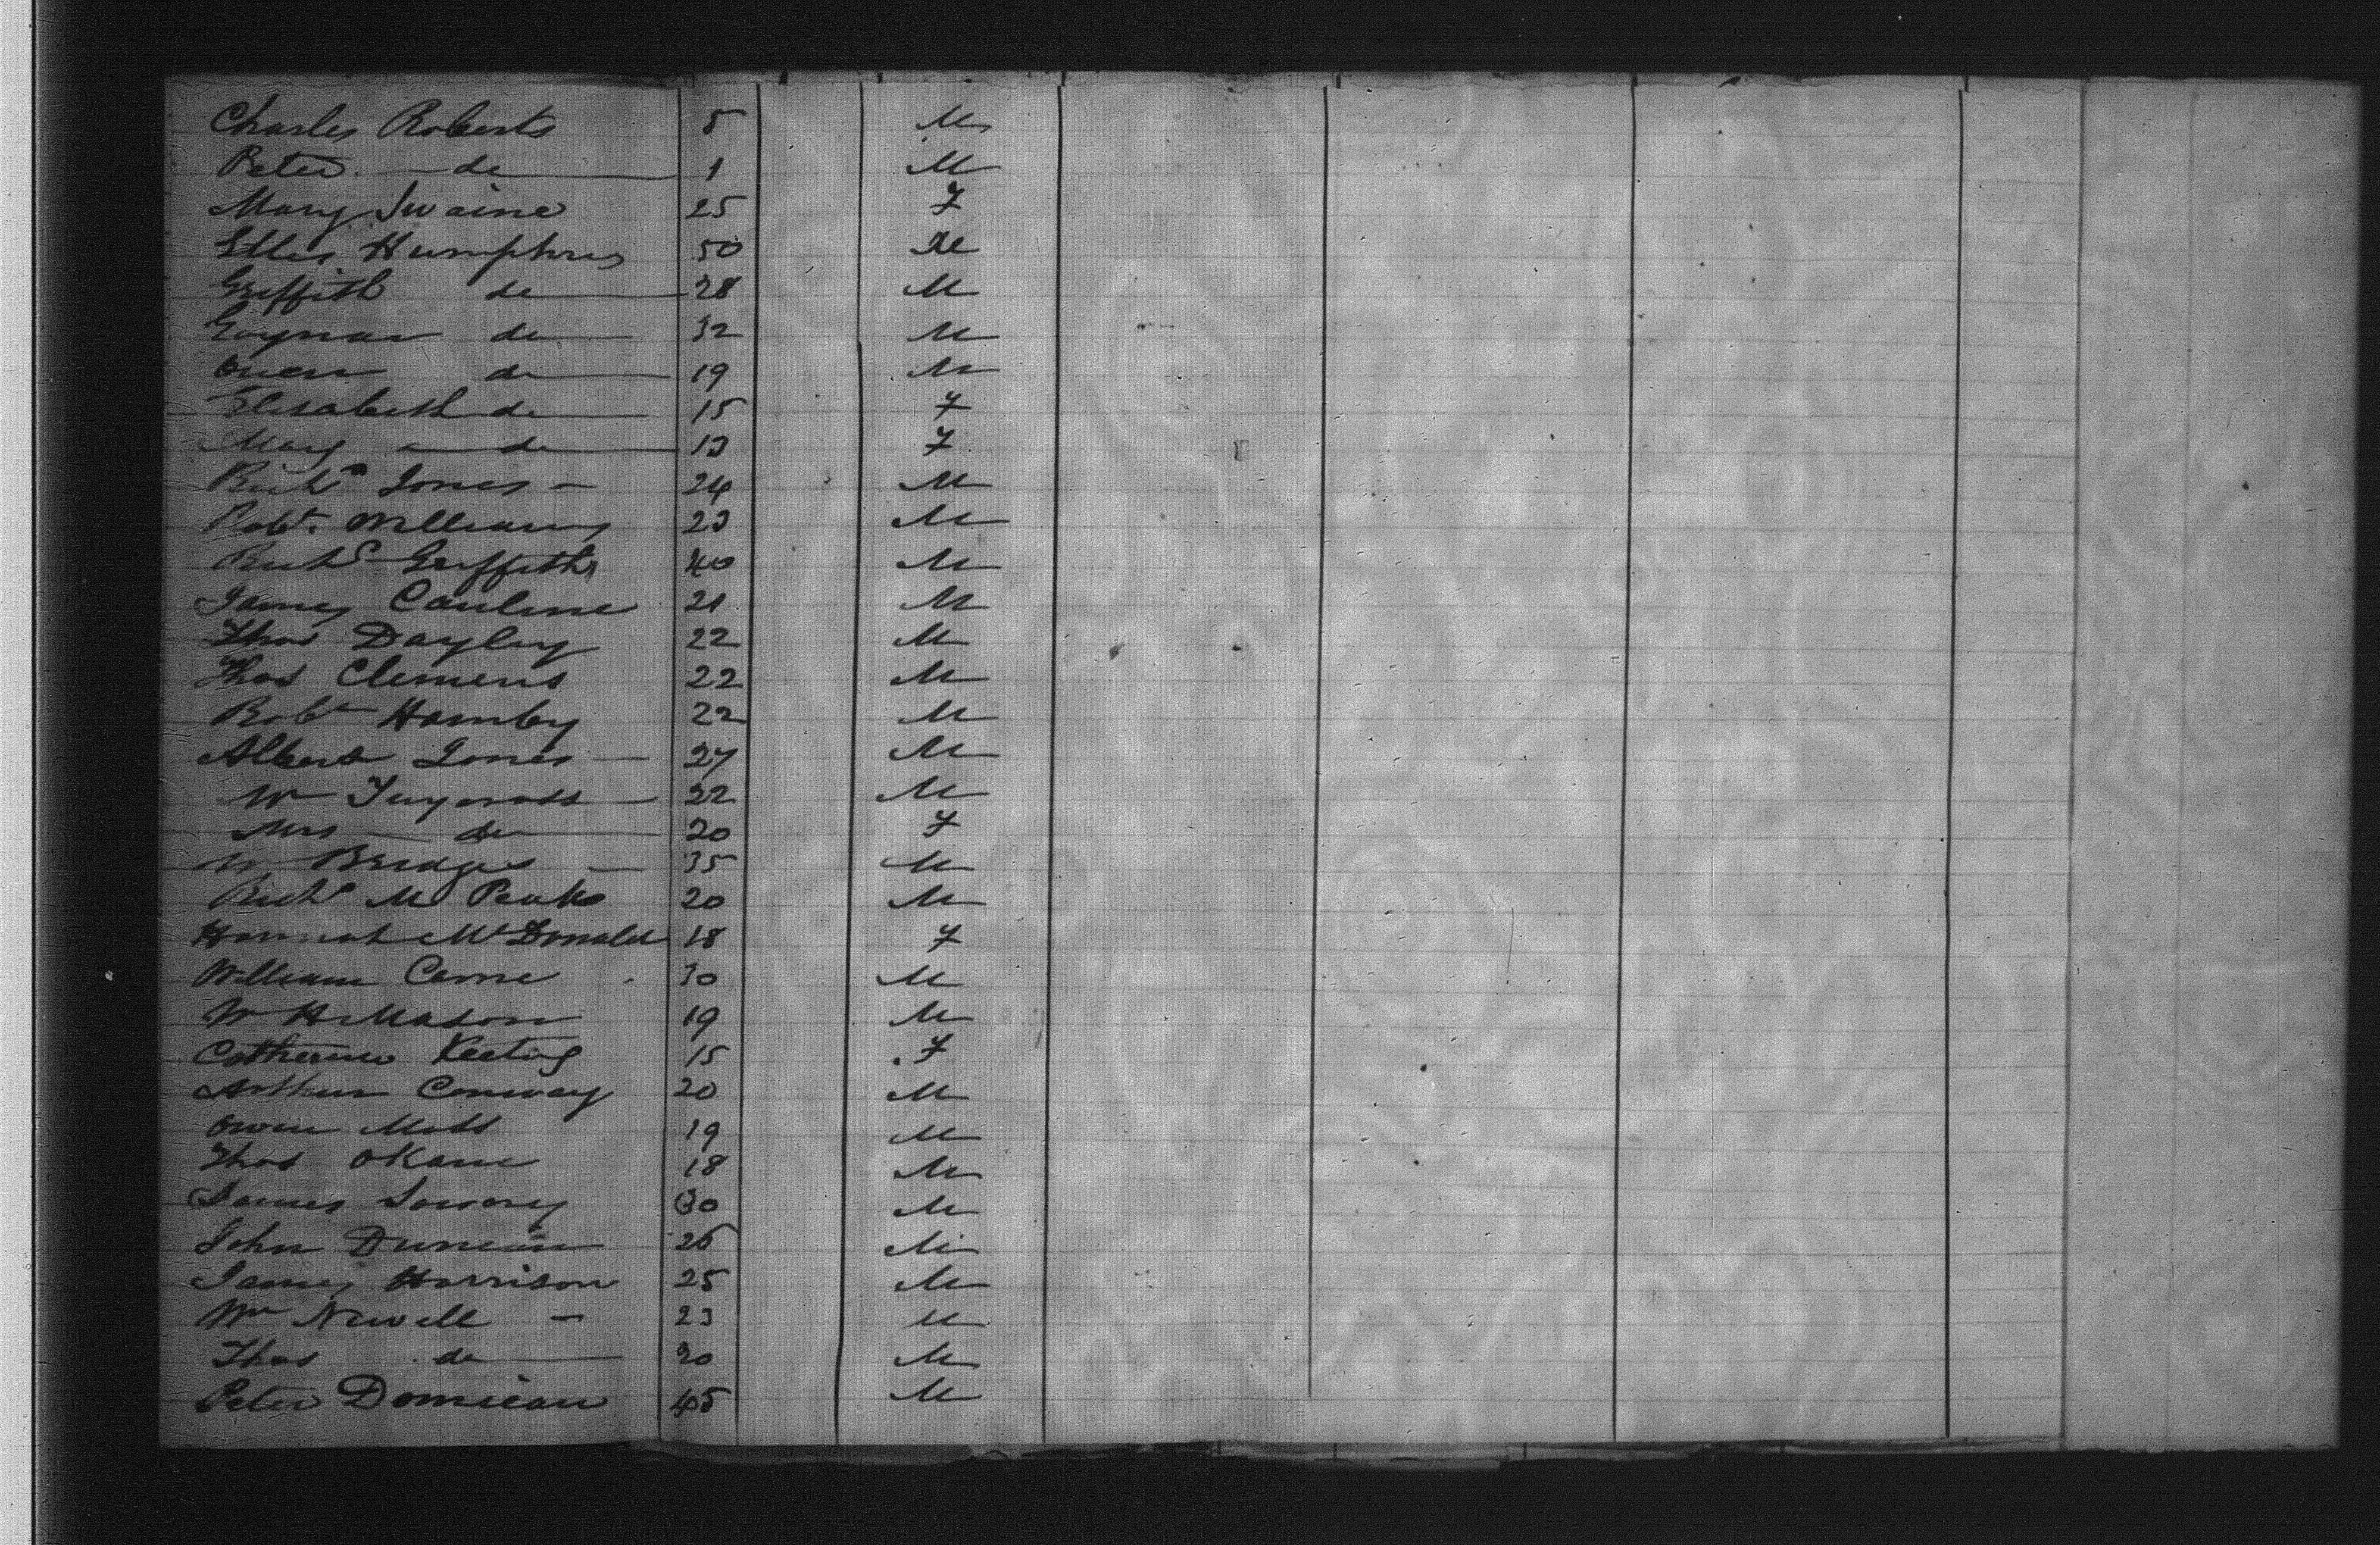 Charles Roberts 5 M
Peter do 1 M
Mary Swaine 25 F
Ellis Humphris 50 M
Griffith do 28 M
Gaynar do 32 M
Owen do 19 M
Elisabeth do 15 F
Mary do 13 F
Richd Jones 24 M
Robt. Williams 23 M
Richd Griffiths 40 M
James Cauline 21 M
Thos Dayley 22 M
Thos Clemens 22 M
Robt Hamby 22 M
Albert Jones 27 M
Wm 22 M
Mrs do 20 F
W Bridges 35 M
Richd M Peaks 20 M
Hannah McDonald 18 F
William Corne 30 M
W H Mason 19 M
Catherine Keeting 15 F
Arthur Conway 20 M
Owen Moss 19 M
Thos OKane 18 M
James Lowary 30 M
John Duncan 26 M
James Harrison 25 M
Wm Newell 23 M
Thos do 20 M
Peter 45 M